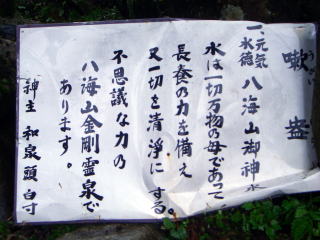 嗽盥
一、元気水徳 八海山御神水
水は一切万物の母であって
長養の力を備え
又一切を清浄にする。
不思議な力の
八海山金剛霊泉で
あります。
神主 和泉頭白寸